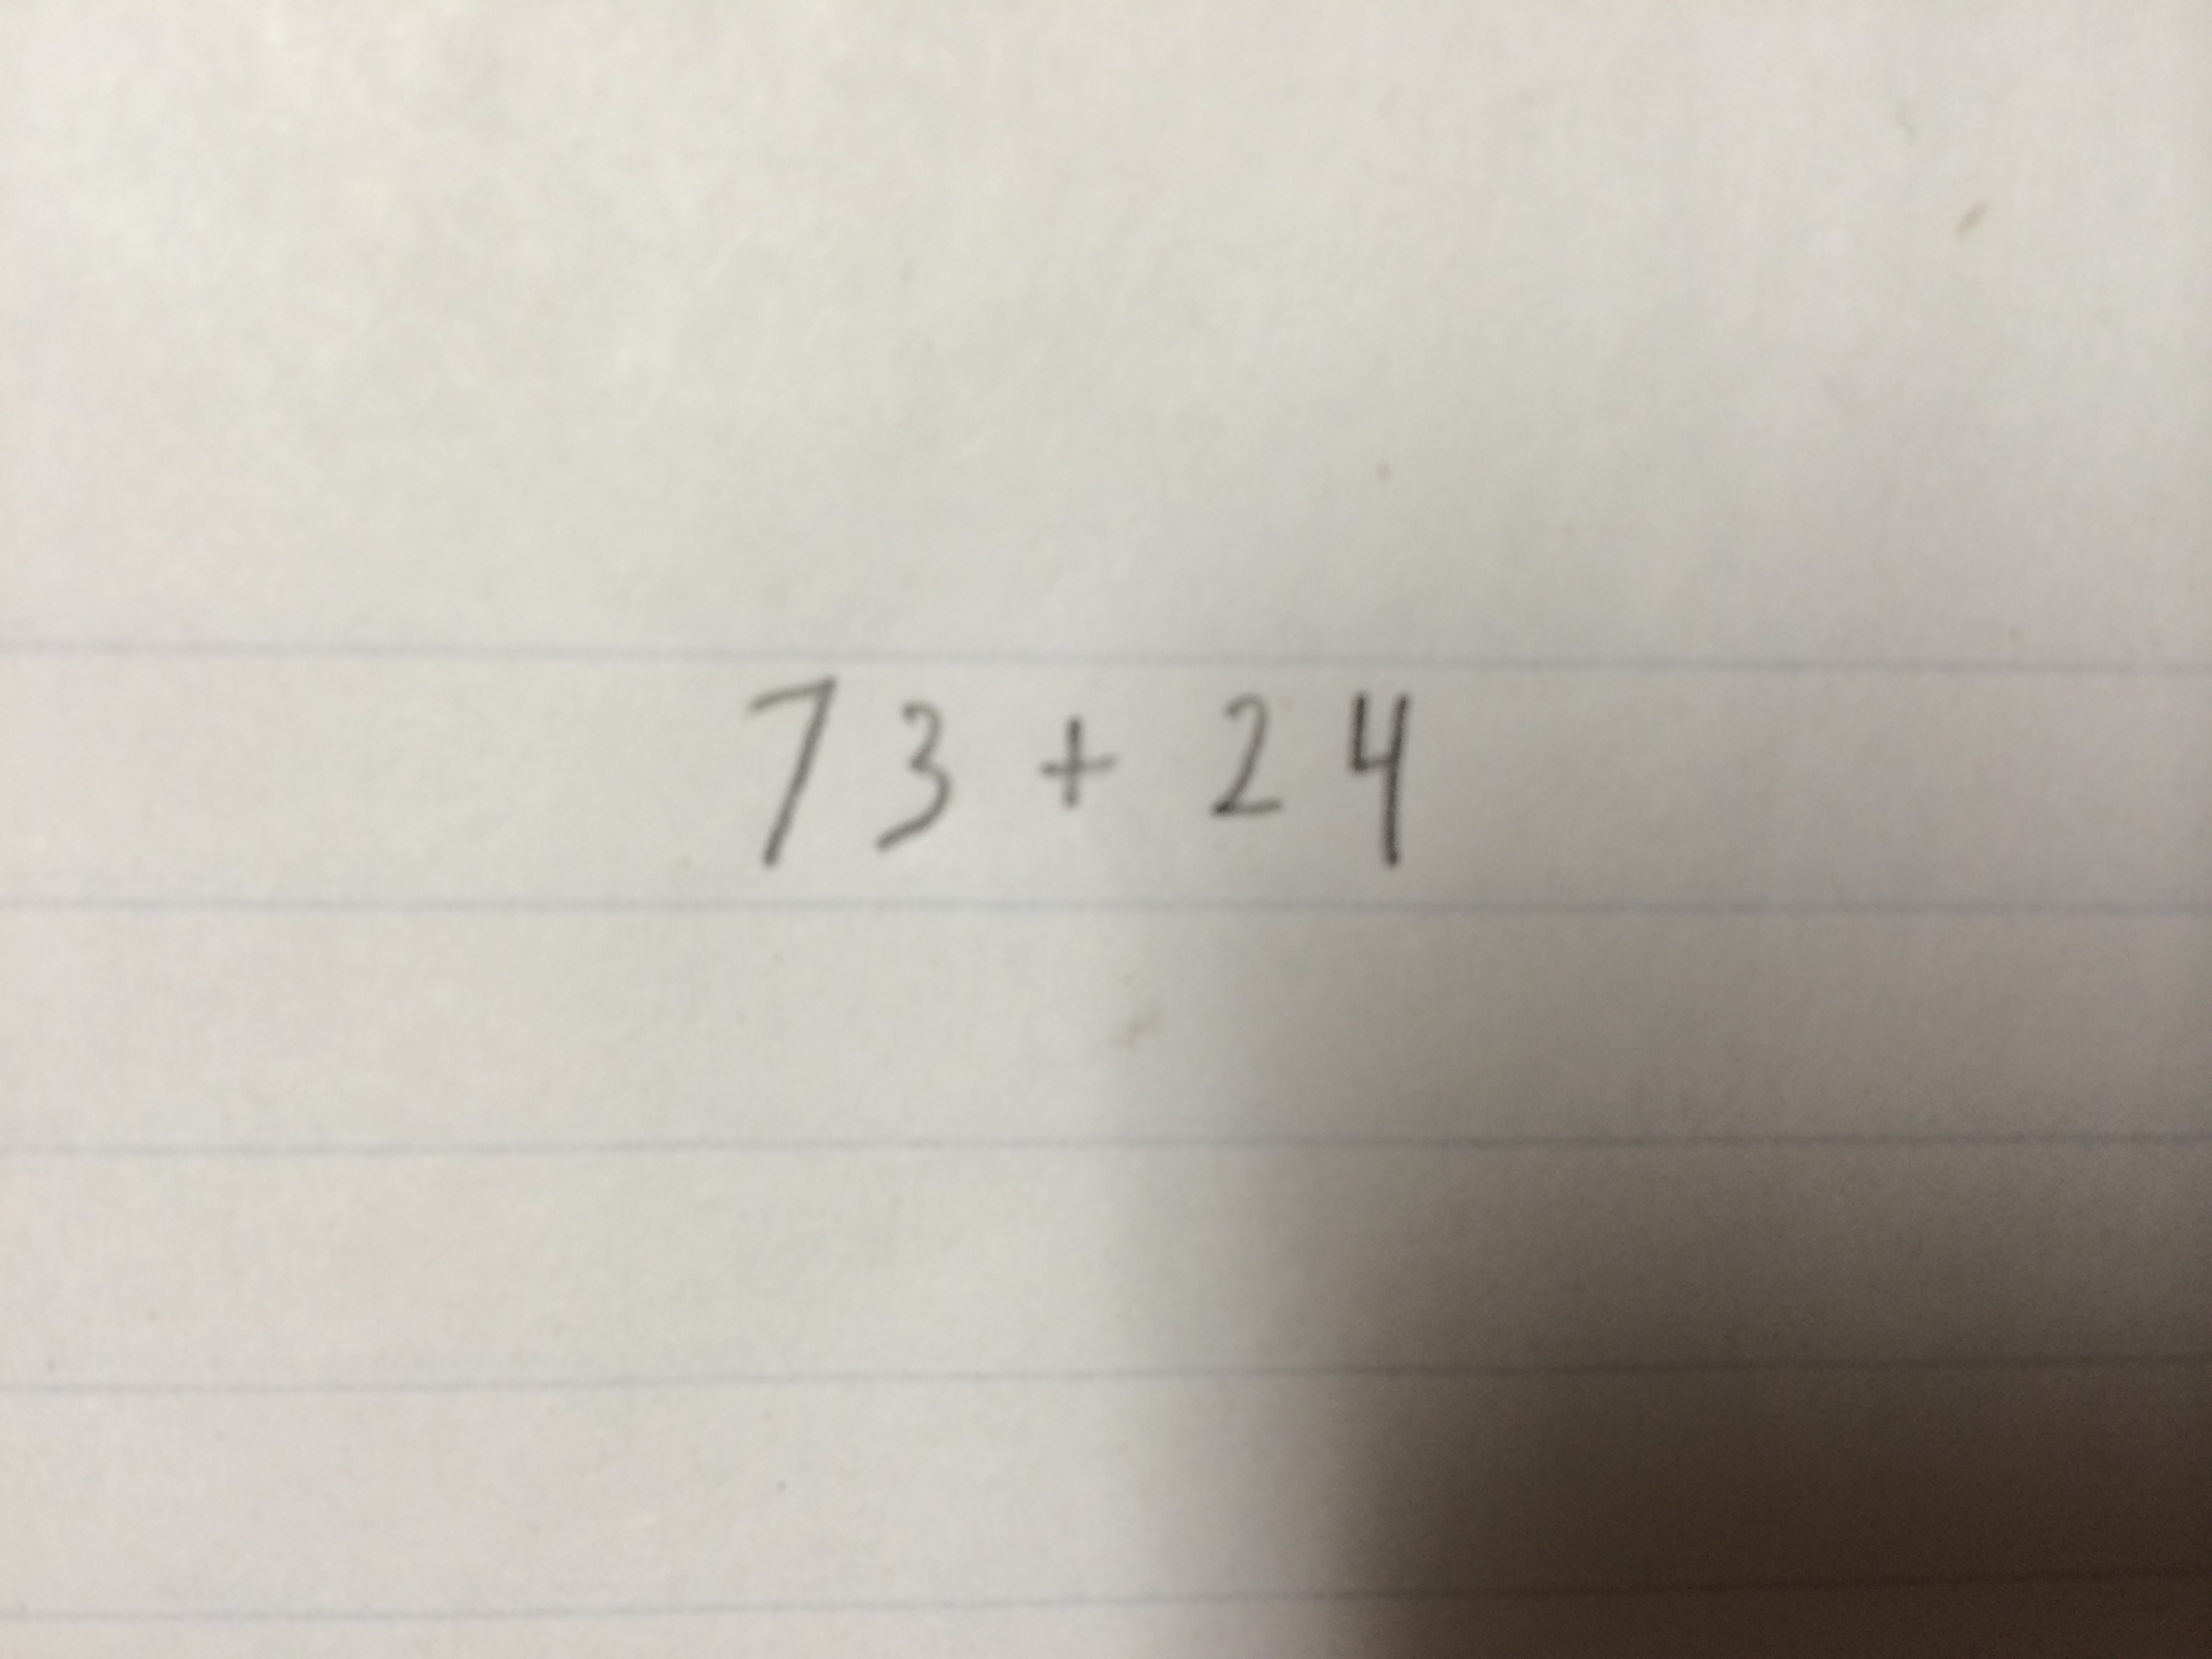 73 + 24